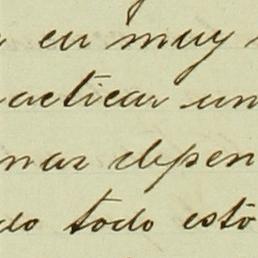 en muy
acticar un
nar depen
do todo esto